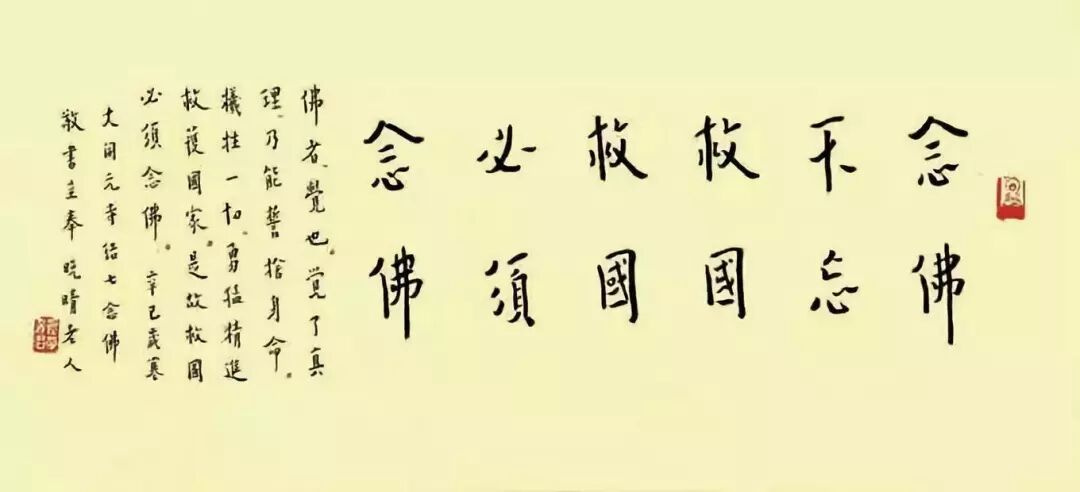 念佛
不忘
救國
救國
必須
念佛
佛者、覺也。覺了真
理、乃能誓捨身命。
犧牲一切、勇猛精進
救護國家。是故救國
必須念佛。辛巳歲寒
大開元寺結七念佛
敬書呈奉 晚晴老人